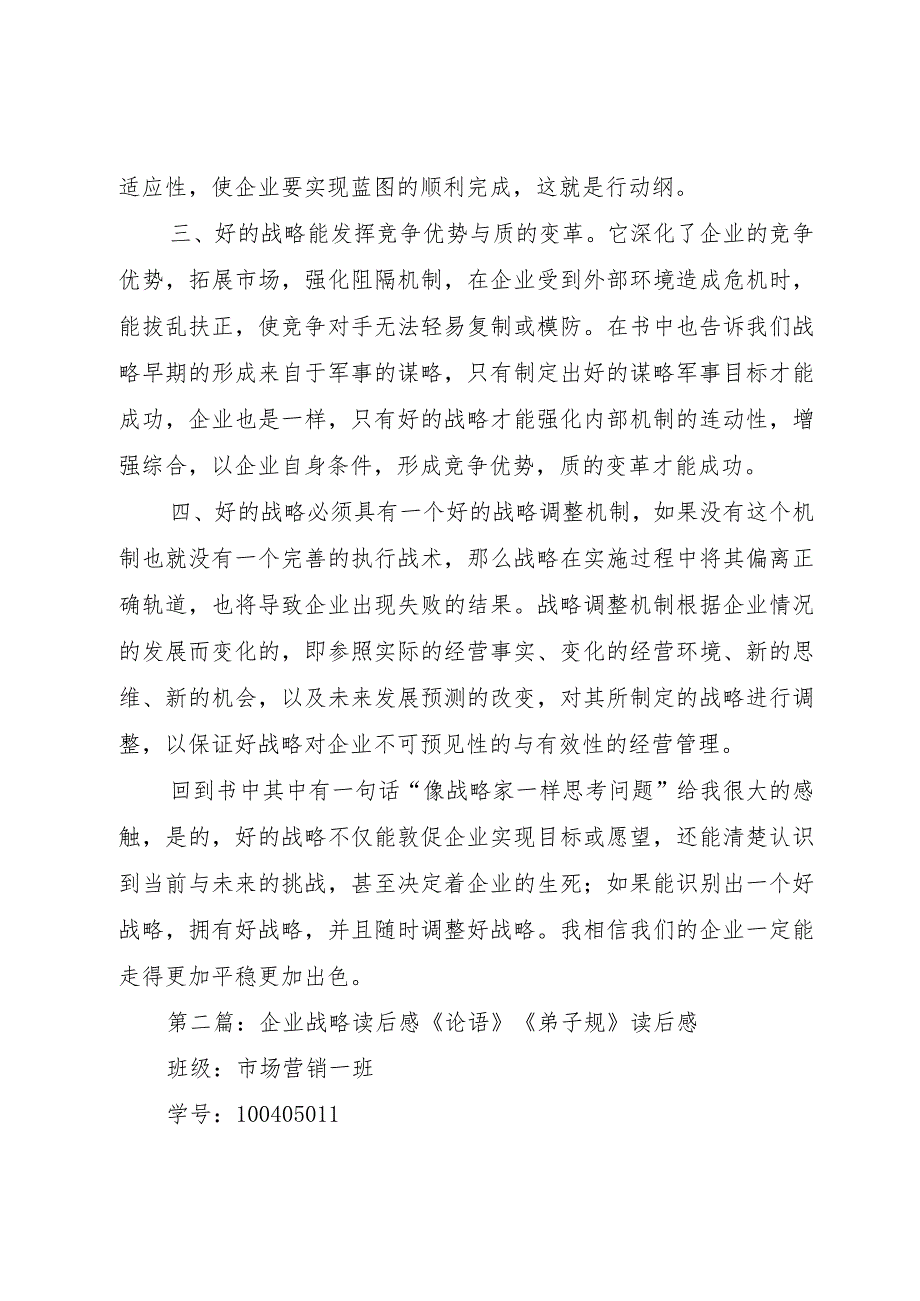 适应性，使企业要实现蓝图的顺利完成，这就是行动纲。
三、好的战略能发挥竞争优势与质的变革。它深化了企业的竞争
优势，拓展市场，强化阻隔机制，在企业受到外部环境造成危机时，
能拔乱扶正，使竞争对手无法轻易复制或模防。在书中也告诉我们战
略早期的形成来自于军事的谋略，只有制定出好的谋略军事目标才能
成功，企业也是一样，只有好的战略才能强化内部机制的连动性，增
强综合，以企业自身条件，形成竞争优势，质的变革才能成功。
四、好的战略必须具有一个好的战略调整机制，如果没有这个机
制也就没有一个完善的执行战术，那么战略在实施过程中将其偏离正
确轨道，也将导致企业出现失败的结果。战略调整机制根据企业情况
的发展而变化的，即参照实际的经营事实、变化的经营环境、新的思
维、新的机会，以及未来发展预测的改变，对其所制定的战略进行调
整，以保证好战略对企业不可预见性的与有效性的经营管理。
回到书中其中有一句话“像战略家一样思考问题”给我很大的感
触，是的，好的战略不仅能敦促企业实现目标或愿望，还能清楚认识
到当前与未来的挑战，甚至决定着企业的生死；如果能识别出一个好
战略，拥有好战略，并且随时调整好战略。我相信我们的企业一定能
走得更加平稳更加出色。
第二篇：企业战略读后感《论语》《弟子规》读后感
班级：市场营销一班
学号：100405011